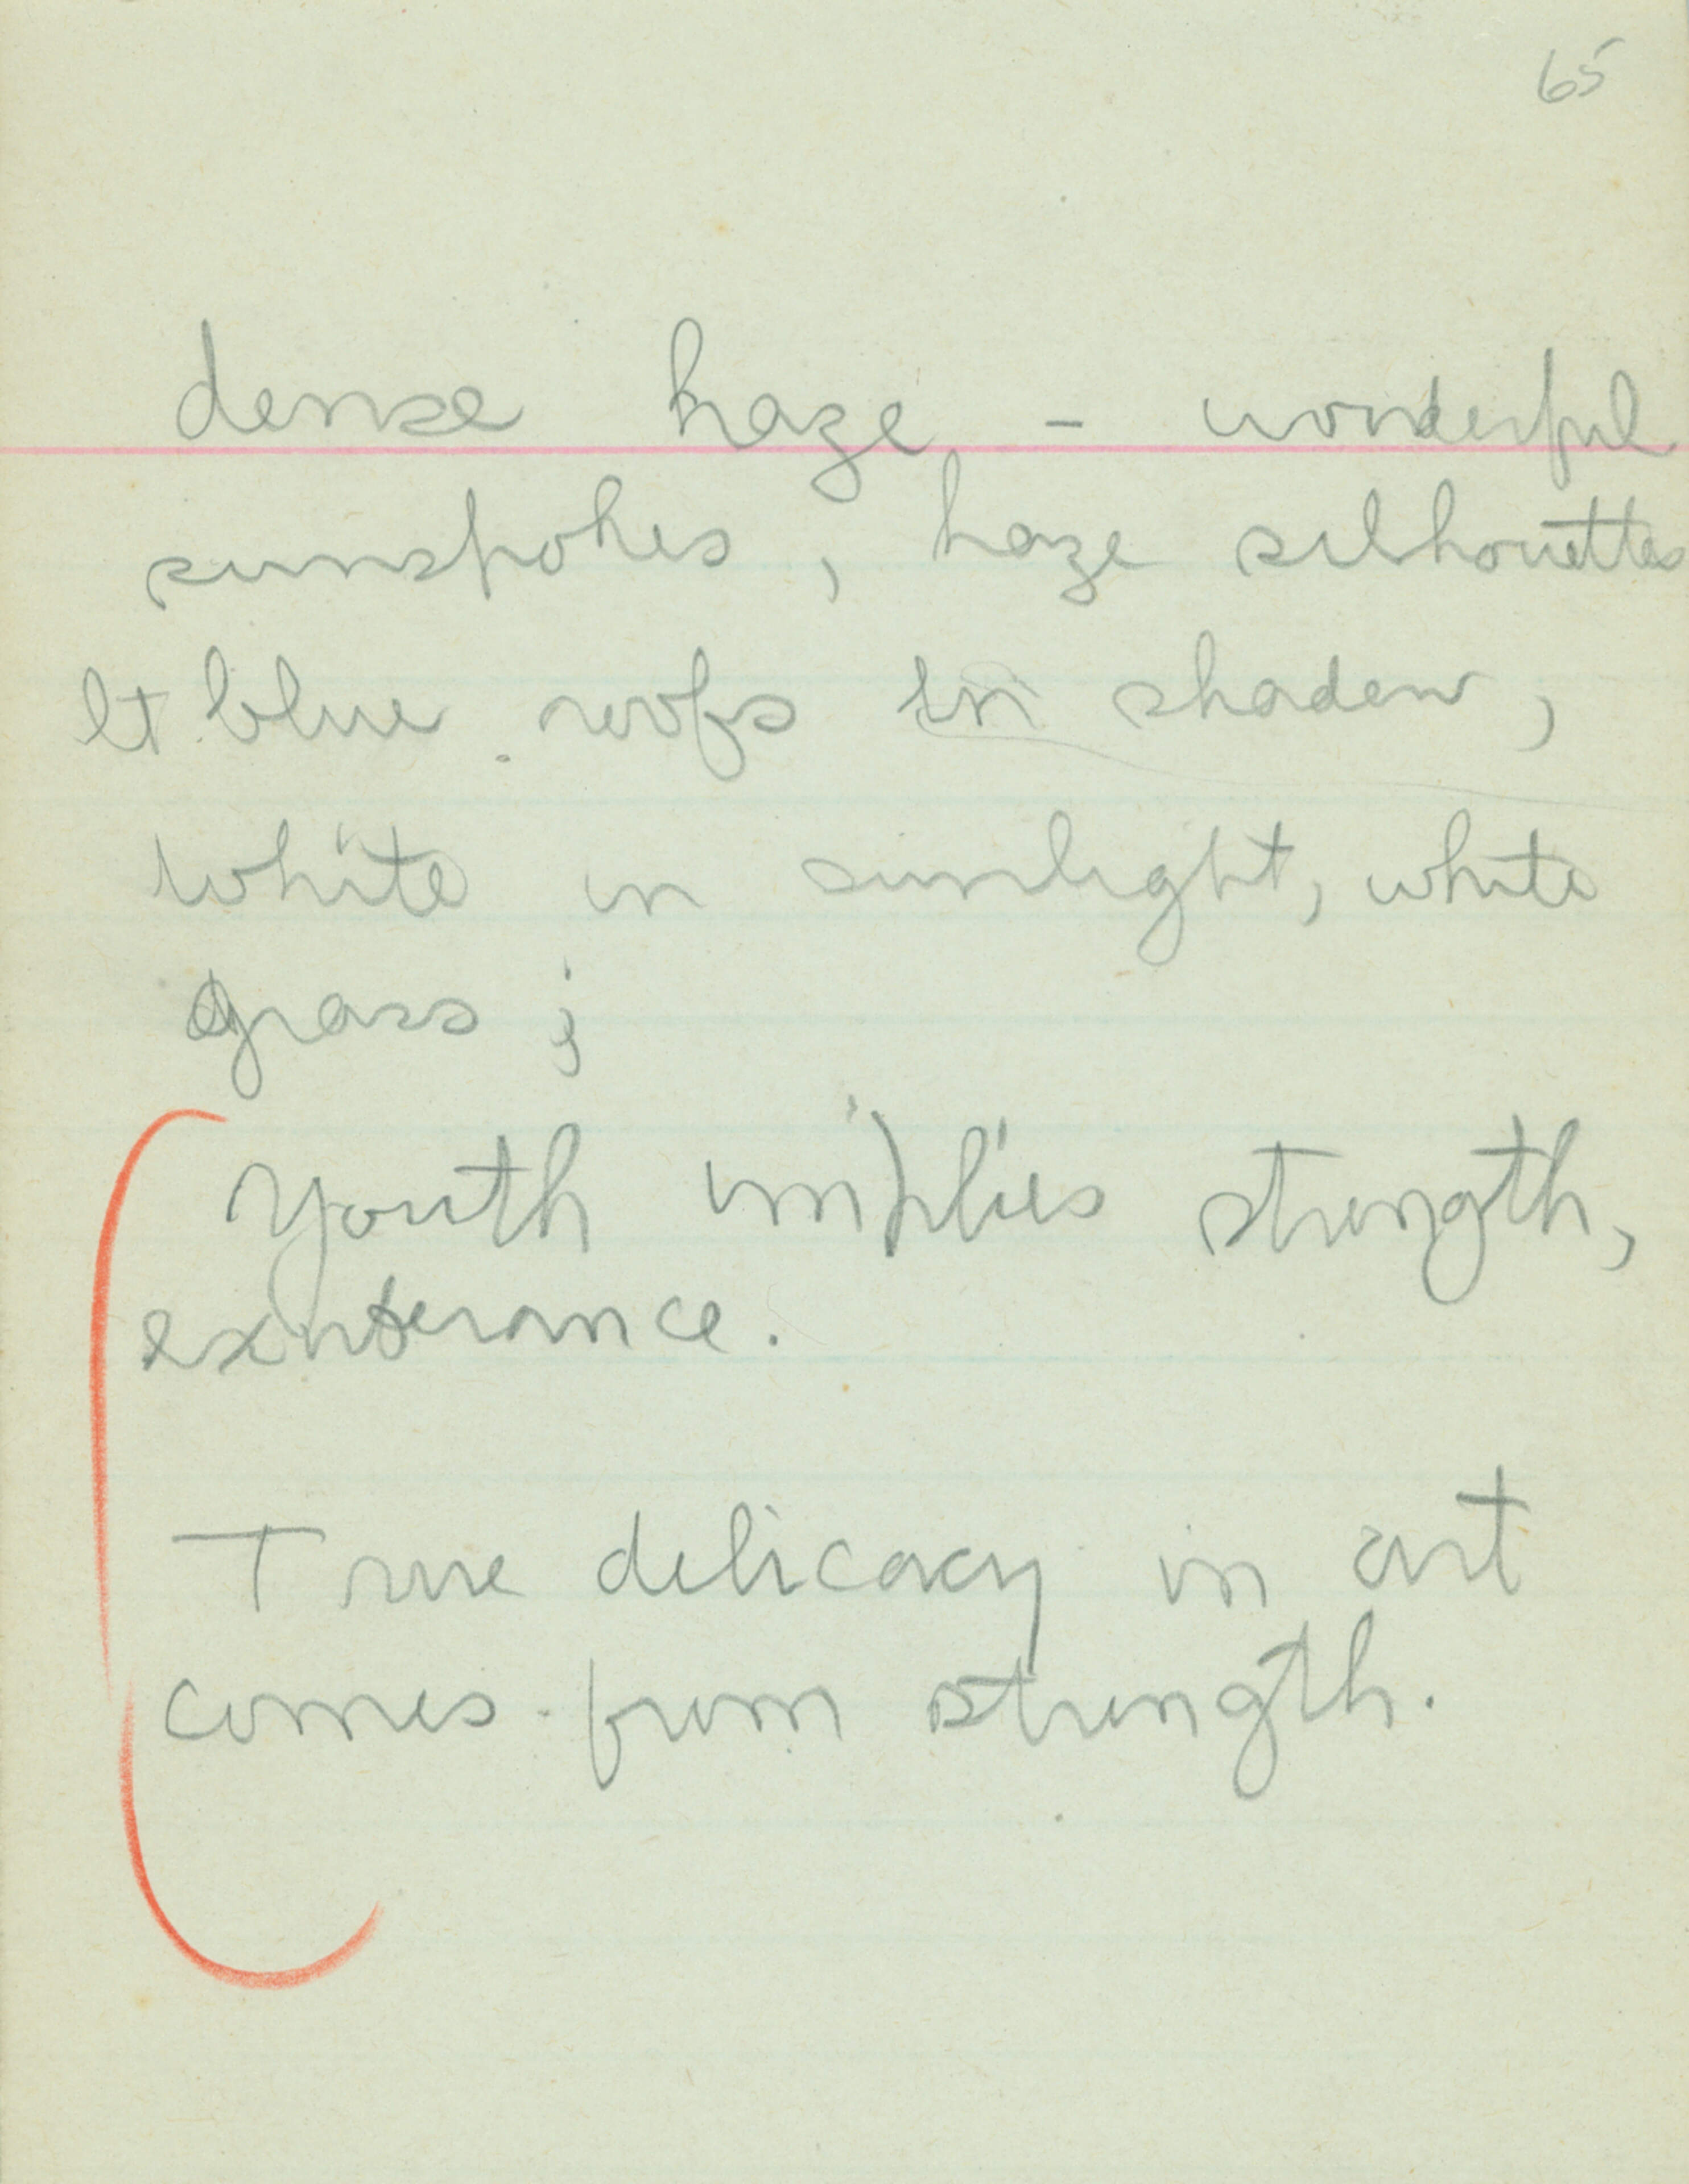 65
dense haze - wonderful
sunspokes, haze silhouettes
lt blue roofs in shadow,
white in sunlight, white
grass;
Youth implies strength,
exuberance.
True delicacy in art
comes from strength.